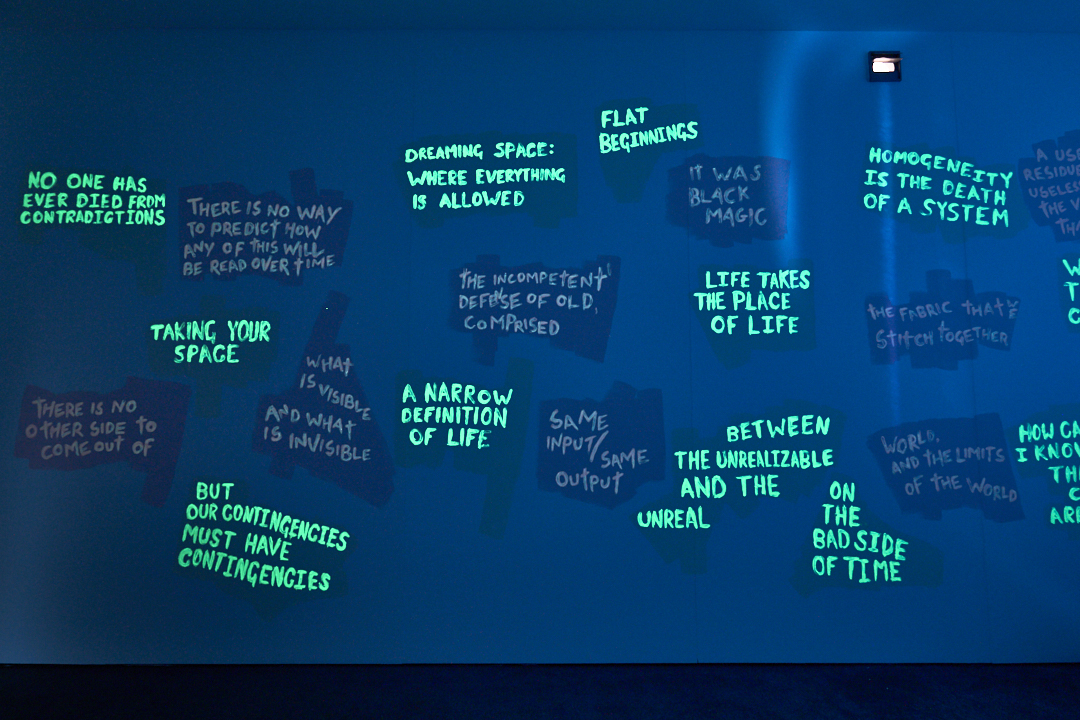 FLAT
BEGINNINGS
DREAMING SPACE:
WHERE EVERYTHING
IS ALLOWED
NO ONE HAS
EVER DIED FROM
CONTRADICTIONS
THERE IS NO WAY
TO PREDICT HOW
ANY OF THIS WILL
BE READ OVER TIME
IT WAS
BLACK
MAGIC
HOMOGENEITY
IS THE DEATH
OF A SYSTEM
A USE
RESIDUE
USELESS
THE V
THA
THE INCOMPETENT
DEFENSE OF OLD,
COMPRISED
LIFE TAKES
THE PLACE
OF LIFE
THE FABRIC THAT'S
STITCH TOGETHER
W
T
TAKING YOUR
SPACE
WHAT
IS VISIBLE
AND WHAT
IS INVISIBLE
THERE IS NO
OTHER SIDE TO
COME OUT OF
A NARROW
DEFINITION
OF LIFE
SAME
INPUT/SAME
OUTPUT
BETWEEN
THE UNREALIZABLE
AND THE
UNREAL
WORLD,
AND THE LIMITS
OF THE WORLD
HOW CA
I KNOW
TH
AR
BUT
OUR CONTINGENCIES
MUST HAVE
CONTINGENCIES
ON
THE
BAD SIDE
OF TIME